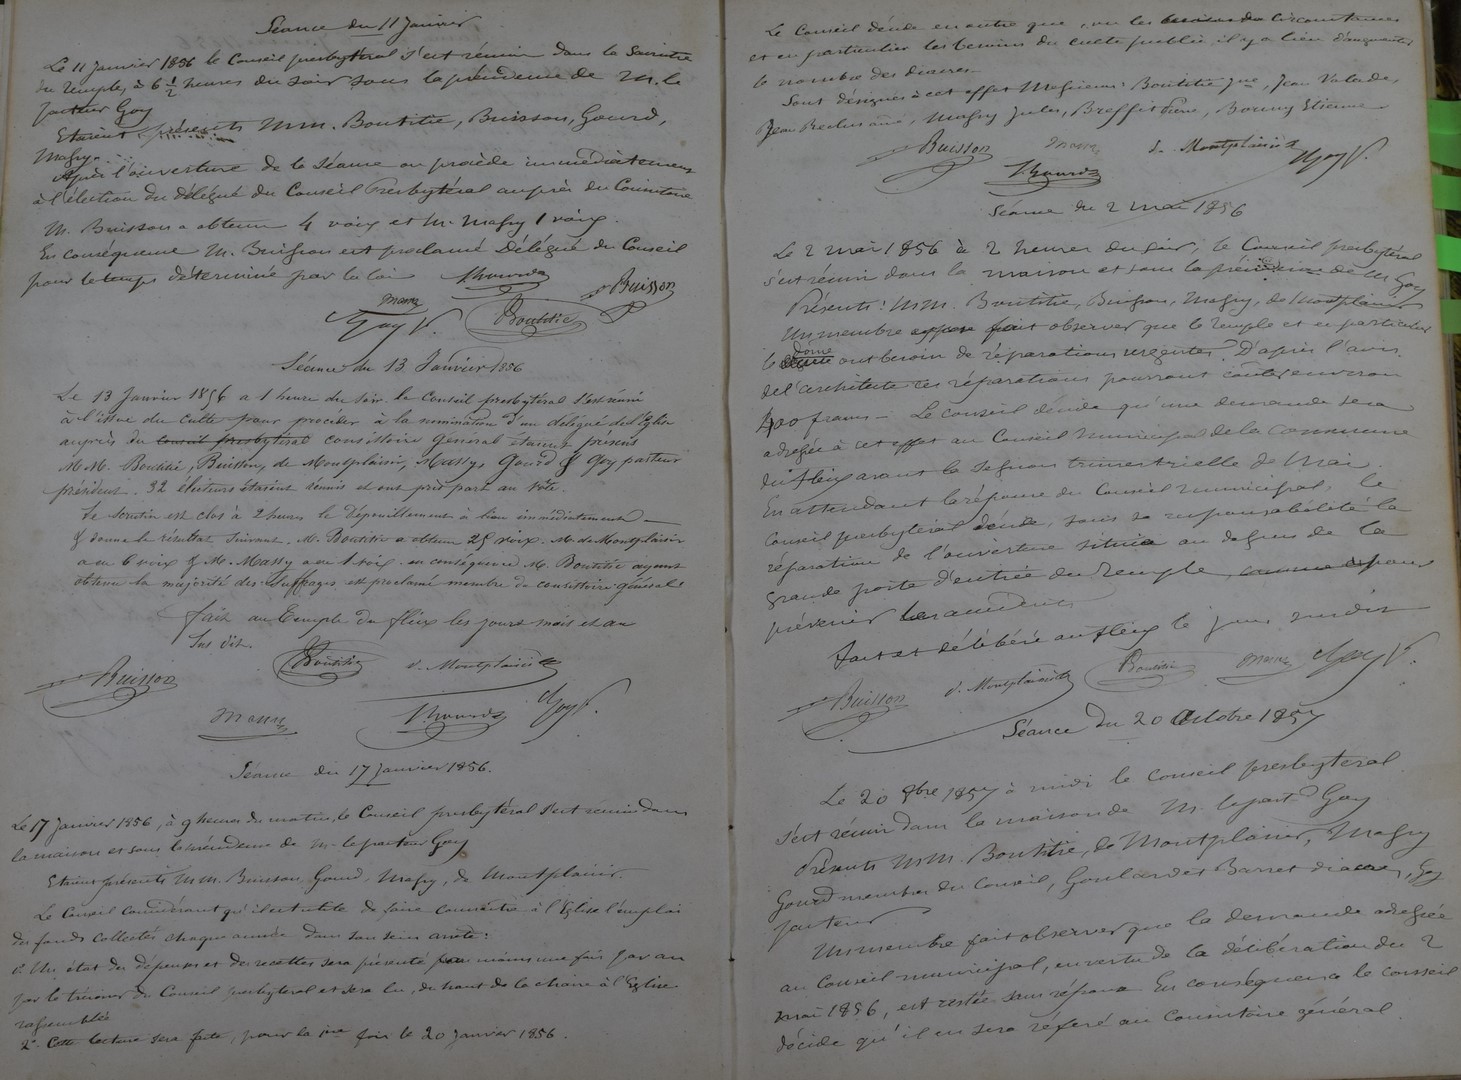 Séance du 11 Janvier
Le 11 Janvier 1856 le Conseil presbytéral s'est réuni dans la Sacristie
du Temple, à 6 1/2 heures du soir sous la présidence de M. le
pasteur Goy
Etaient présents MM. Boutitie, Buisson, Gourd,
Massy.
Après l'ouverture de la Séance on procède immédiatement
à l'élection du délégué du Conseil Presbytéral auprès du Consistoire
M. Buisson a obtenu 4 voix et M. Massy 1 voix.
En conséquence M. Buisson est proclamé Délégué du Conseil
pour le temps déterminé par la loi
Gourd
Buisson
Massy
Goy P.
Boutitie
Séance du 13 Janvier 1856
Le 13 Janvier 1856 a 1 heure du soir le Conseil presbytéral s'est réuni
à l'issue du Culte pour procéder à la nomination d'un délégué de l'Eglise
auprès du conseil presbytéral consistoire général étaient présents
MM. Boutitie, Buisson, de Montplaisir, Massy, Gourd & Goy pasteur
président. 32 électeurs étaient réunis et ont pris part au vote.
Le Scrutin est clos à 2 heures le dépouillement à lieu immédiatement
& donne le résultat suivant. M. Boutitie a obtenu 25 voix. M. de Montplaisir
a eu 6 voix & M. Massy a eu 1 voix. en conséquence M. Boutitie ayant
obtenu la majorité des suffrages est proclamé membre du consistoire général
fait au Temple du fleix les jours mois et an
sus dit.
Buisson
Boutitie
d. Montplaisir
Massy
Gourd
Goy P.
Séance du 17 Janvier 1856.
Le 17 Janvier 1856, à 9 heures du matin, le Conseil presbytéral s'est réuni dans
la maison et sous la présidence de M. le pasteur Goy
Etaient présents MM. Buisson, Gourd, Massy, de Montplaisir.
Le Conseil considérant qu'il est utile de faire connaître à l'Eglise l'emploi
des fonds collectés chaque année dans son sein arrête:
1°. Un état des dépenses et des recettes sera présenté au moins une fois par an
par le trésorier du Conseil presbytéral et sera lu, du haut de la chaire à l'Eglise
rassemblée
2°. Cette lecture sera faite, pour la 1ère fois le 20 Janvier 1856.
Le Conseil décide en outre que, vu les besoins des circonstances
et en particulier les besoins du culte public, il y a lieu d'augmenter
le nombre des diacres.
Sont désignés à cet effet Messieurs: Boutitie jne, Jean Valade,
Jean Reclus ainé, Massy Jules, Étienne
Buisson
Massy
d. Montplaisir
Gourd
Goy P.
Séance du 2 mai 1856
Le 2 mai 1856 à 2 heures du soir, le Conseil presbytéral
s'est réuni dans la maison et sous la présidence de M. Goy
Présents: MM. Boutitie, Buisson, Massy, de Montplaisir
Un membre fait observer que le temple et en particulier
le dome ont besoin de réparations urgentes. D'après l'avis
de l'architecte ces réparations pourront coûter environ
400 francs. Le conseil décide qu'une demande sera
adressée à cet effet au Conseil municipal de la commune
du fleix avant la session trimestrielle de Mai.
En attendant la réponse du Conseil municipal, le
Conseil presbytéral décide, sous sa responsabilité la
réparation de l'ouverture située au dessus de la
grande porte d'entrée du Temple, pour
prévenir les accidents
fait et délibéré au fleix le jour susdit
Buisson
d. Montplaisir
Boutitie
Massy
Goy P.
Séance du 20 Octobre 1857
Le 20 8bre 1857 à midi le Conseil presbytéral
s'est réuni dans la maison de M. le past. Goy
Présents MM. Boutitie, de Montplaisir, Massy
Gourd membres du Conseil, Goulard et Barret diacres, Goy
pasteur
Un membre fait observer que la demande adressée
au Conseil municipal, en vertu de la délibération du 2
mai 1856, est restée sans réponse. En conséquence le conseil
décide qu'il en sera référé au Consistoire général.